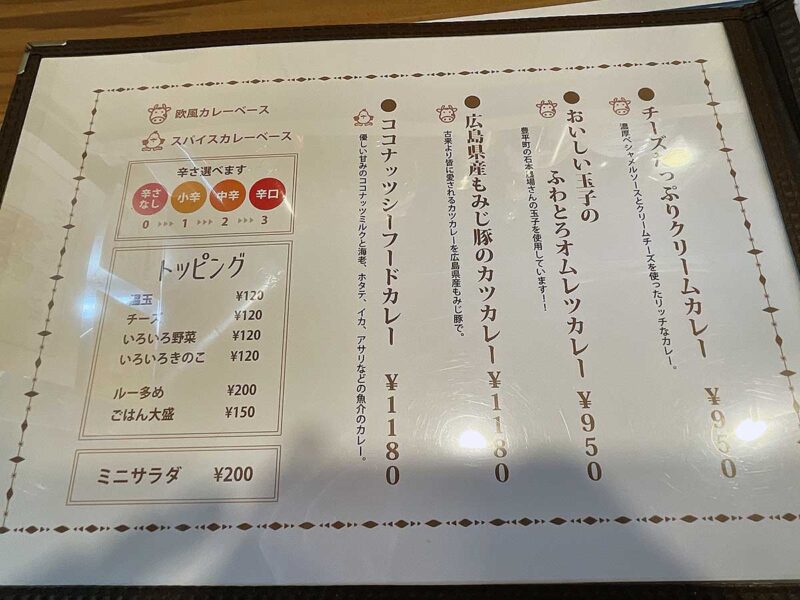 チーズたっぷりクリームカレー ¥950
濃厚ベシャメルソースとクリームチーズを使ったリッチなカレー。
おいしい玉子の
ふわとろオムレツカレー ¥950
豊平町の石本 場さんの玉子を使用しています!!
広島県産もみじ豚のカツカレー ¥1180
古来より皆に愛されるカツカレーを広島県産もみじ豚で。
ココナッツシーフードカレー ¥1180
優しい甘みのココナッツミルクと海老、ホタテ、イカ、アサリなどの魚介のカレー。
欧風カレーベース
スパイスカレーベース
辛さ選べます
辛さなし 小辛 中辛 辛口
0 1 2 3
トッピング
温玉 ¥120
チーズ ¥120
いろいろ野菜 ¥120
いろいろきのこ ¥120
ルー多め ¥200
ごはん大盛 ¥150
ミニサラダ ¥200